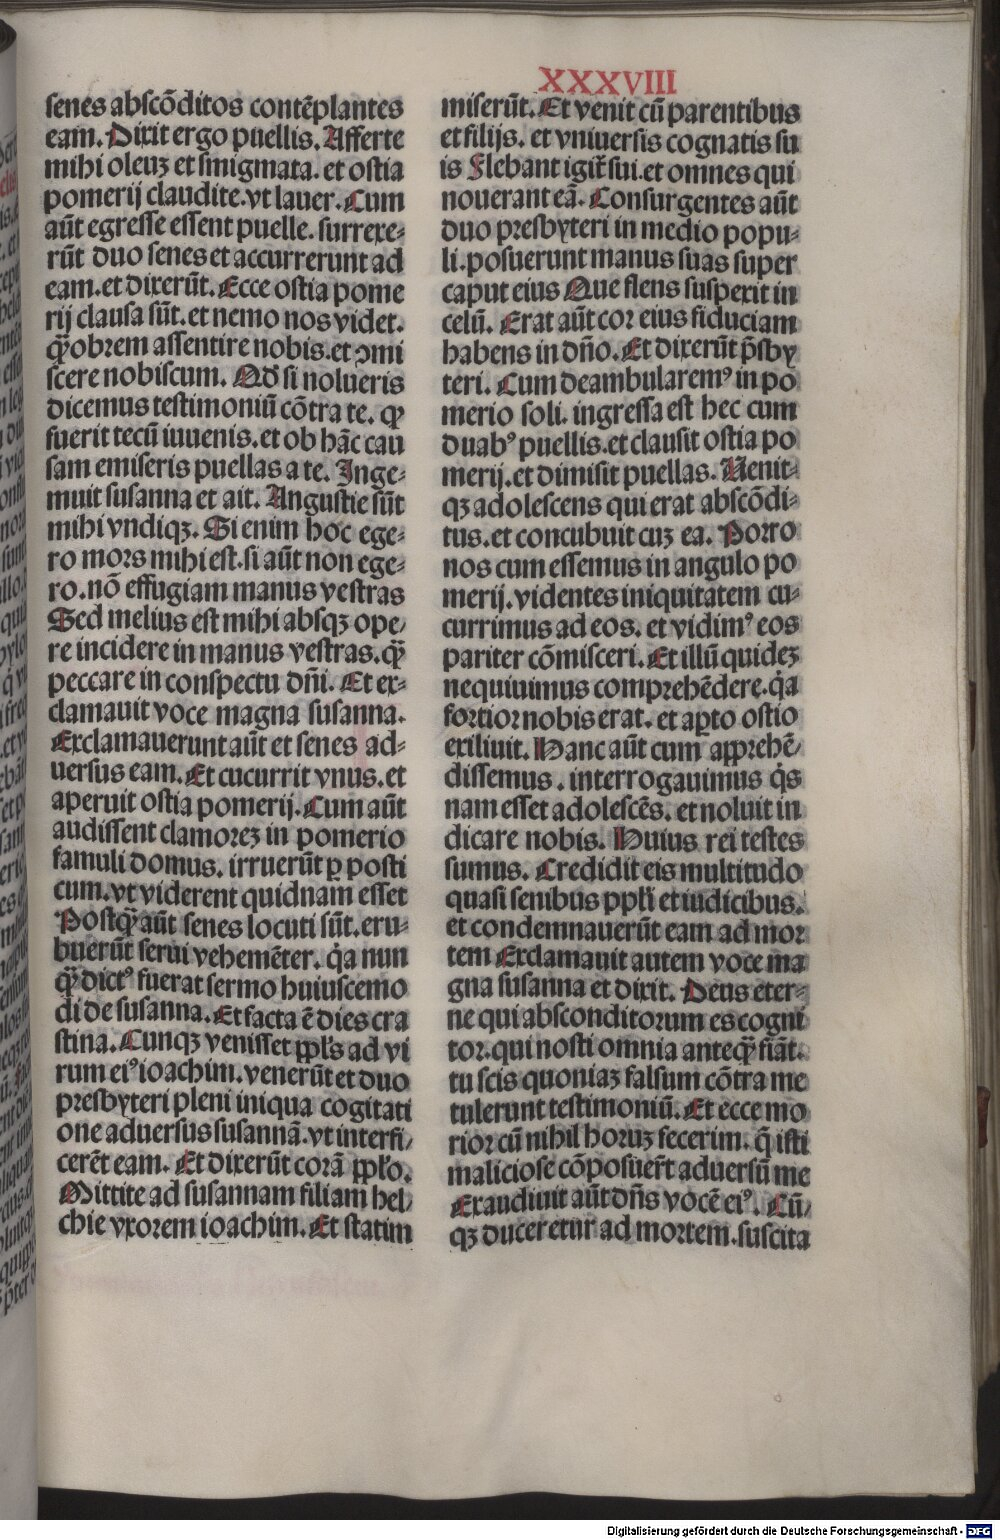 XXXVIII
senes abscõditos contẽplantes
eam. Dixit ergo puellis. Afferte
mihi oleuʒ et smigmata. et ostia
pomerij claudite. vt lauer. Cum
aũt egresse essent puelle. surrexe-
rũt duo senes et accurrerunt ad
eam. et dixerũt. Ecce ostia pome
rij clausa sũt. et nemo nos videt.
qꝫobrem assentire nobis. et ꝯmi
scere nobiscum. Qd̾ si nolueris
dicemus testimoniũ cõtra te. ꝙ
fuerit tecũ iuuenis. et ob hãc cau
sam emiseris puellas a te. Inge-
muit susanna et ait. Angustie sũt
mihi vndiqʒ. Si enim hoc ege-
ro mors mihi est. si aũt non ege-
ro. nõ effugiam manus vestras
Sed melius est mihi absqʒ ope-
re incidere in manus vestras. q̃
peccare in conspectu dñi. Et ex-
clamauit voce magna susanna.
Exclamauerunt aũt et senes ad-
uersus eam. Et cucurrit vnus. et
aperuit ostia pomerij. Cum aũt
audissent clamoreʒ in pomerio
famuli domus. irruerũt ꝑ posti
cum. vt viderent quidnam esset
Postq̃ aũt senes locuti sũt. eru-
buerũt serui vehemẽter. q̇a nun
q̃ dictꝰ fuerat sermo huiuscemo
di de susanna. Et facta ẽ dies cra
stina. Cunqʒ venisset ppl̃s ad vi
rum eiꝰ ioachim. venerũt et duo
presbyteri pleni iniqua cogitati
one aduersus susannã. vt interfi-
cerẽt eam. Et dixerũt corã ppl̃o.
Mittite ad susannam filiam hel-
chie vxorem ioachim. Et statim
miserũt. Et venit cũ parentibus
et filijs. et vniuersis cognatis su
is Flebant igit̃ sui. et omnes qui
nouerant eã. Consurgentes aũt
duo presbyteri in medio popu-
li. posuerunt manus suas super
caput eius Que flens suspexit in
celũ. Erat aũt cor eius fiduciam
habens in dño. Et dixerũt p̃sby
teri. Cum deambularemꝰ in po
merio soli. ingressa est hec cum
duabꝰ puellis. et clausit ostia po
merij. et dimisit puellas. Venit-
qʒ adolescens qui erat abscõdi-
tus. et concubuit cuʒ ea. Porro
nos cum essemus in angulo po
merij. videntes iniquitatem cu-
currimus ad eos. et vidimꝰ eos
pariter cõmisceri. Et illũ quideʒ
nequiuimus comprehẽdere. q̇a
fortior nobis erat. et aꝑto ostio
exiliuit. Hanc aũt cum apprehẽ-
dissemus. interrogauimus q̇s
nam esset adolescẽs. et noluit in
dicare nobis. Huius rei testes
sumus. Credidit eis multitudo
quasi senibus ppl̃i et iudicibus.
et condemnauerũt eam ad mor
tem Exclamauit autem voce ma
gna susanna et dixit. Deus eter-
ne qui absconditorum es cogni
tor. qui nosti omnia anteq̃ fiãt.
tu scis quoniaʒ falsum cõtra me
tulerunt testimoniũ. Et ecce mo
rior cũ nihil horuʒ fecerim. q̃ isti
maliciose cõposuer̃t aduersũ me
Exaudiuit aũt dñs vocẽ eiꝰ. Cũ-
qʒ duceretur ad mortem. suscita
Digitalisierung gefördert durch die Deutsche Forschungsgemeinschaft - DFG